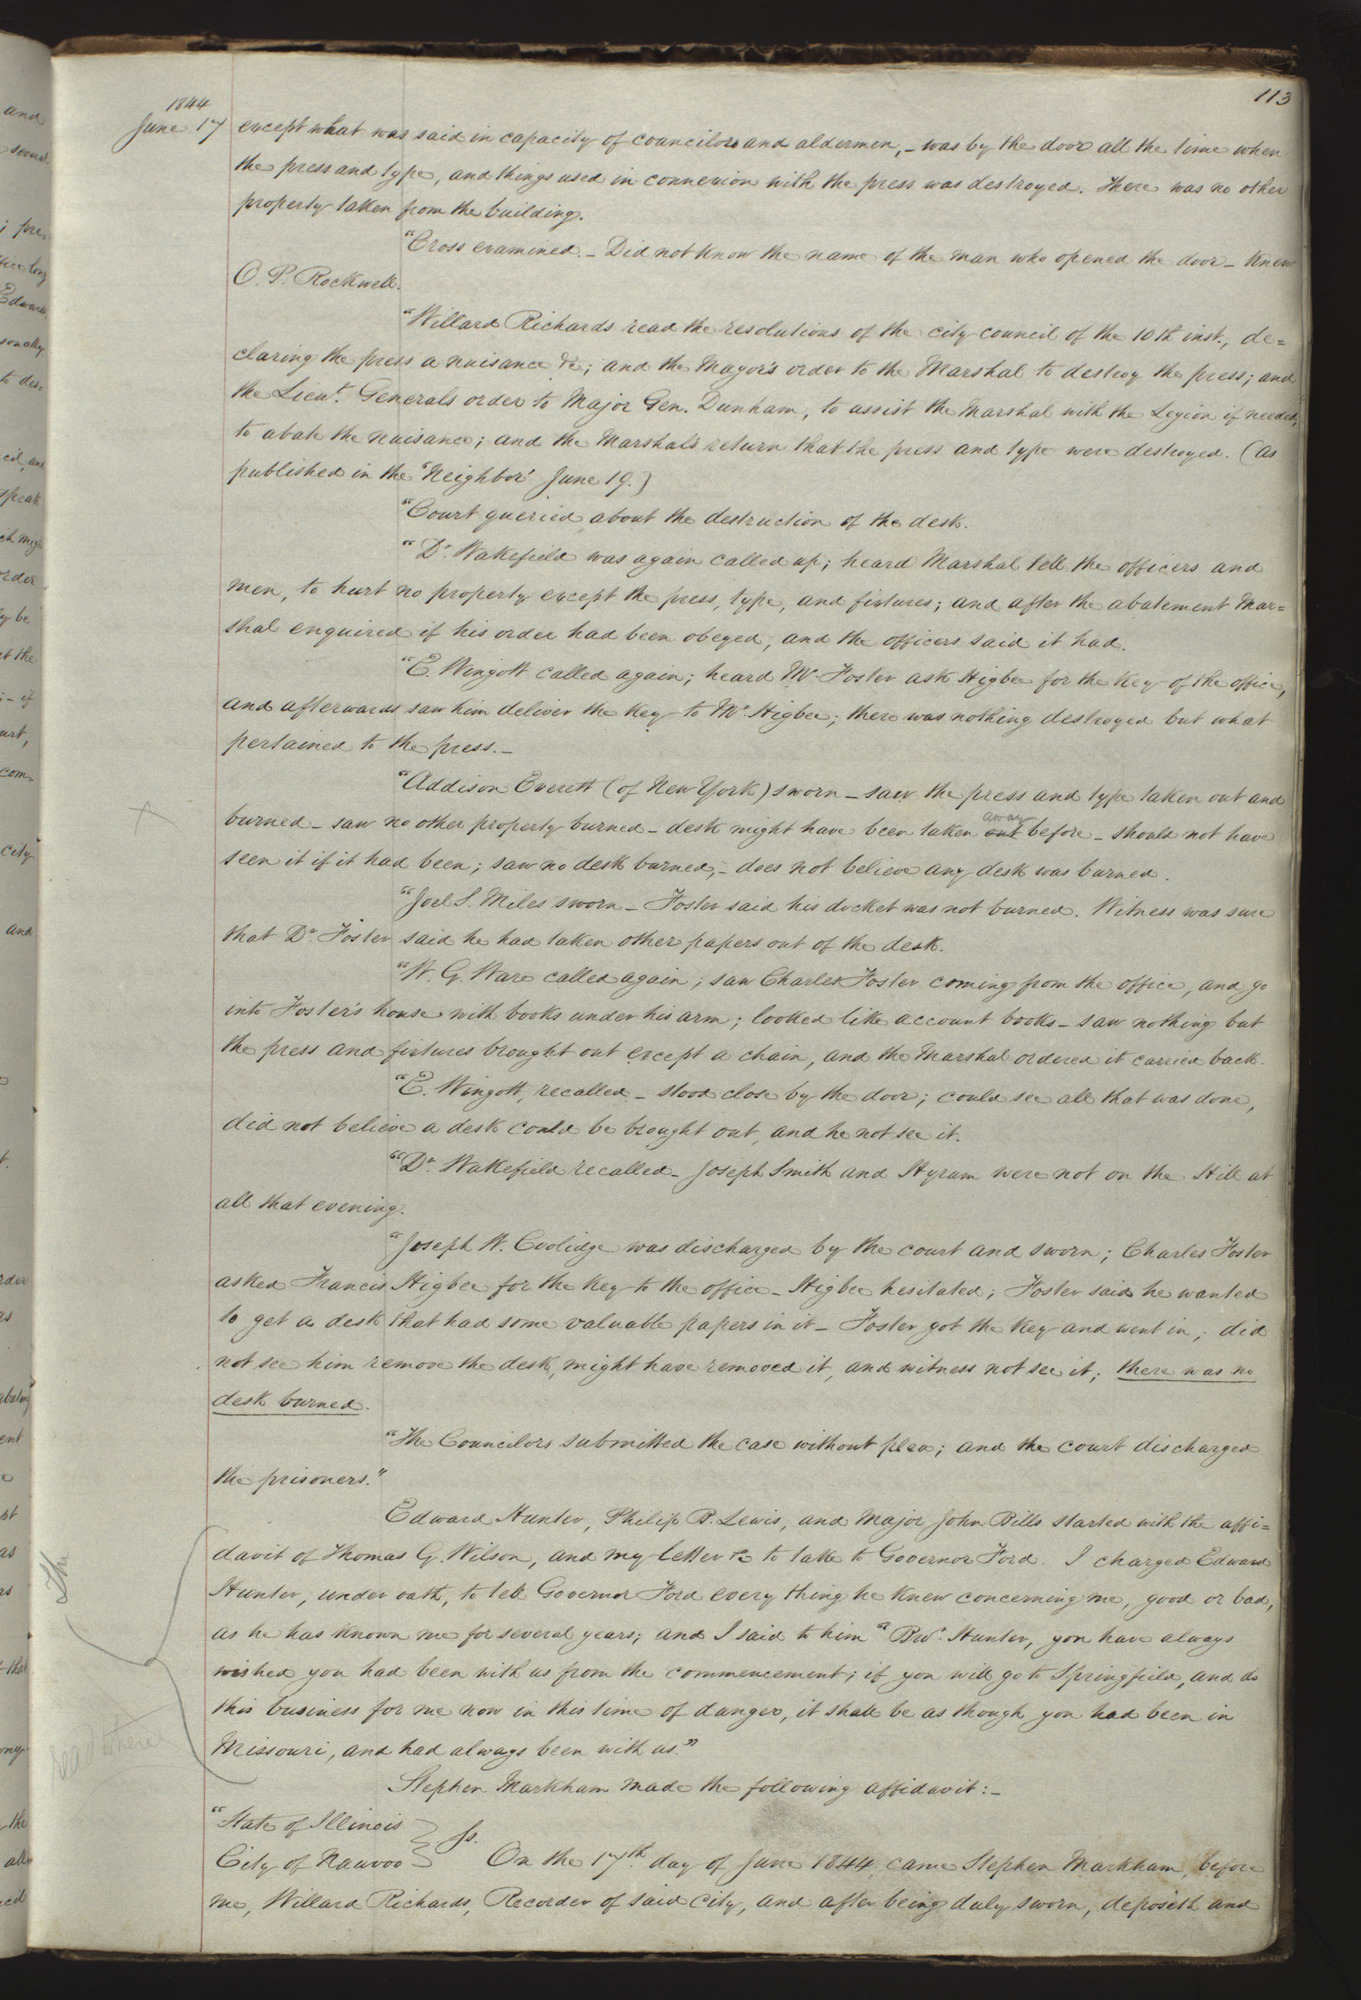 113
1844
June 17 except what was said in capacity of councilors and aldermen,– was by the door all the time when
the press and type, and things used in connexion with the press was destroyed. There was no other
property taken from the building.
"Cross examined.– Did not know the name of the man who opened the door– knew
O. P. Rockwell.
"Willard Richards read the resolutions of the city council of the 10th inst., de=
claring the press a nuisance &c; and the Mayor's order to the Marshal to destroy the press; and
the Lieut. Generals order to Major Gen. Dunham, to assist the Marshal with the Legion if needed,
to abate the nuisance; and the Marshal's return that the press and type were destroyed. (as
published in the 'Neighbor' June 19.)
"Court queried about the destruction of the desk.
"Dr. Wakefield was again called up; heard Marshal tell the officers and
men, to hurt no property except the press, type, and fixtures; and after the abatement Mar=
shal enquired if his order had been obeyed, and the officers said it had.
"E. Wingott called again; heard Mr. Foster ask Higbee for the key of the office,
and afterwards saw him deliver the key to Mr. Higbee; there was nothing destroyed but what
pertained to the press.–
"Addison Everett (of New York) sworn– saw the press and type taken out and
burned– saw no other property burned– desk might have been taken out away before– should not have
seen it if it had been; saw no desk burned,– does not believe any desk was burned.
"Joel S. Miles sworn– Foster said his docket was not burned. Witness was sure
that Dr. Foster said he had taken other papers out of the desk.
"W. G. Ware called again; saw Charles Foster coming from the office, and go
into Foster's house with books under his arm; looked like account books– saw nothing but
the press and fixtures brought out except a chain, and the Marshal ordered it carried back.
"E. Wingott, recalled– stood close by the door; could see all that was done,
did not believe a desk could be brought out, and he not see it.
"Dr. Wakefield recalled– Joseph Smith and Hyrum were not on the Hill at
all that evening.
"Joseph W. Coolidge was discharged by the court and sworn; Charles Foster
asked Francis Higbee for the key to the office– Higbee hesitated; Foster said he wanted
to get a desk that had some valuable papers in it– Foster got the key and went in; did
not see him remove the desk, might have removed it, and witness not see it; there was no
desk burned.
"The Councilors submitted the case without plea; and the court discharged
the prisoners."
Edward Hunter, Philip B. Lewis, and Major John Bills started with the affi=
davit of Thomas G. Wilson, and my letter &c to take to Governor Ford. I charged Edward
Hunter, under oath, to tell Governor Ford every thing he knew concerning me, good or bad,
as he has known me for several years; and I said to him "Bro. Hunter, you have always
wished you had been with us from the commencement; if you will go to Springfield, and do
this business for me now in this time of danger, it shall be as though you had been in
Missouri, and had always been with us."
Stephen Markham made the following affidavit:–
"State of Illinois
City of Nauvoo } Ss. On the 17th day of June 1844, came Stephen Markham, before
me, Willard Richards, Recorder of said City, and after being duly sworn, deposeth and